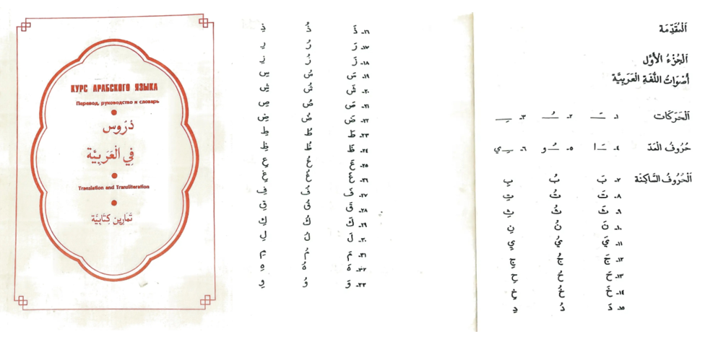 КУРС АРАБСКОГО ЯЗЫКА
Перевод, руководство и словарь
دُرُوس
فِي الْعَرَبِيَّة
Translation and Transliteration
تَمَارِين كِتَابِيَّة
اَلْمُقَدِّمَة
اَلْجُزْءُ الْأَوَّل
أَصْوَاتُ اللُّغَةِ الْعَرَبِيَّة
اَلْحَرَكَات ١. ـَ ٢. ـُ ٣. ـِ
حُرُوفُ الْمَدّ ٤. ـَا ٥. ـُو ٦. ـِي
اَلْحُرُوفُ السَّاكِنَة ٧. بَ بُ بِ
٨. تَ تُ تِ
٩. ثَ ثُ ثِ
١٠. نَ نُ نِ
١١. يَ يُ يِ
١٢. جَ جُ جِ
١٣. حَ حُ حِ
١٤. خَ خُ خِ
١٥. دَ دُ دِ
١٦. ذَ ذُ ذِ
١٧. رَ رُ رِ
١٨. زَ زُ زِ
١٩. سَ سُ سِ
٢٠. شَ شُ شِ
٢١. صَ صُ صِ
٢٢. ضَ ضُ ضِ
٢٣. طَ طُ طِ
٢٤. ظَ ظُ ظِ
٢٥. عَ عُ عِ
٢٦. غَ غُ غِ
٢٧. فَ فُ فِ
٢٨. قَ قُ قِ
٢٩. كَ كُ كِ
٣٠. لَ لُ لِ
٣١. مَ مُ مِ
٣٢. هَ هُ هِ
٣٣. وَ وُ وِ